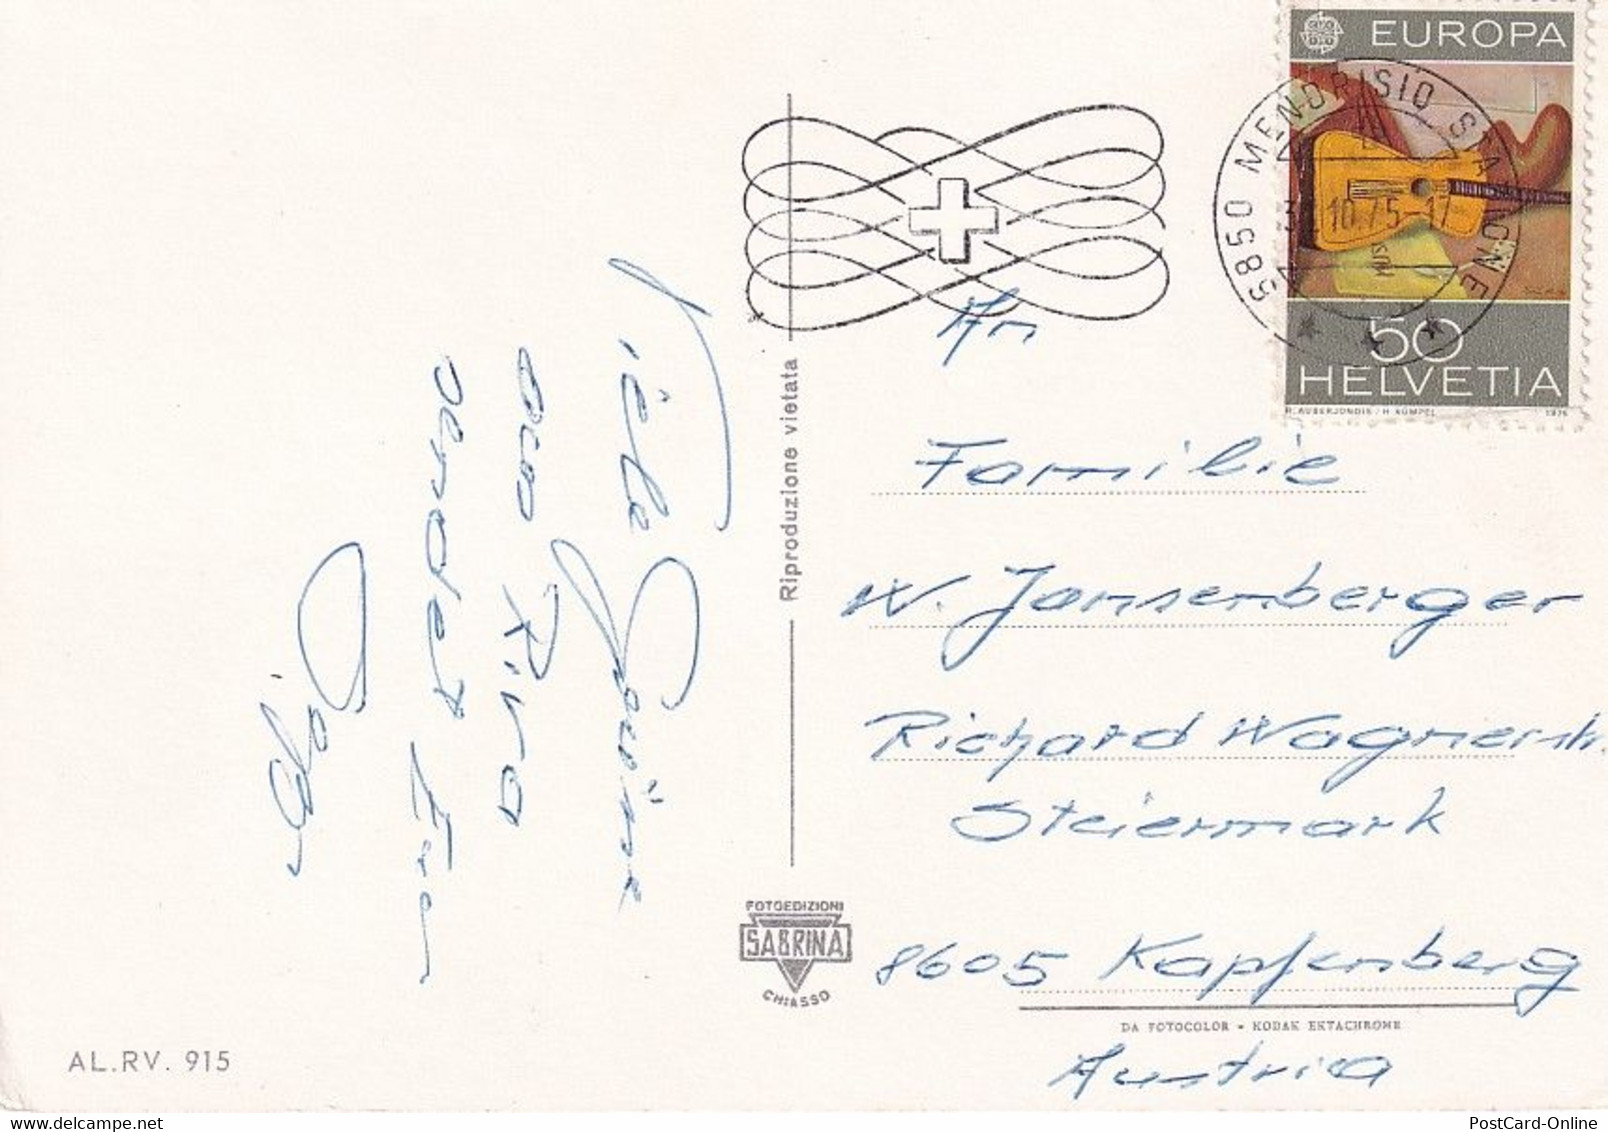 EUROPA
5850 MENDRISIO STAZIONE
10.75-17
50
HELVETIA
R. AUBERJONOIS / H. KÜMPEL 1975
Riproduzione vietata
Viele Grüsse
aus Riva
sendet Euer
An
Familie
W. Jansenberger
Richard Wagnerstr.
Steiermark
8605 Kapfenberg
Austria
FOTOEDIZIONI
SABRINA
CHIASSO
DA FOTOCOLOR - KODAK EKTACHROME
AL.RV. 915
PostCard-Online